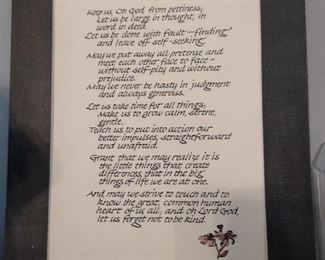 Keep us, Oh God, from pettiness;
Let us be large in thought, in
word, in deed.
Let us be done with fault-finding
and leave off self-seeking.
May we put away all pretense and
meet each other face to face -
without self-pity and without
prejudice.
May we never be hasty in judgment
and always generous.
Let us take time for all things;
Make us to grow calm, serene,
gentle.
Teach us to put into action our
better impulses, straightforward
and unafraid.
Grant that we may realize it is
the little things that create
differences, that in the big
things of life we are at one.
And may we strive to touch and to
know the great, common human
heart of us all, and oh Lord God,
let us forget not to be kind.